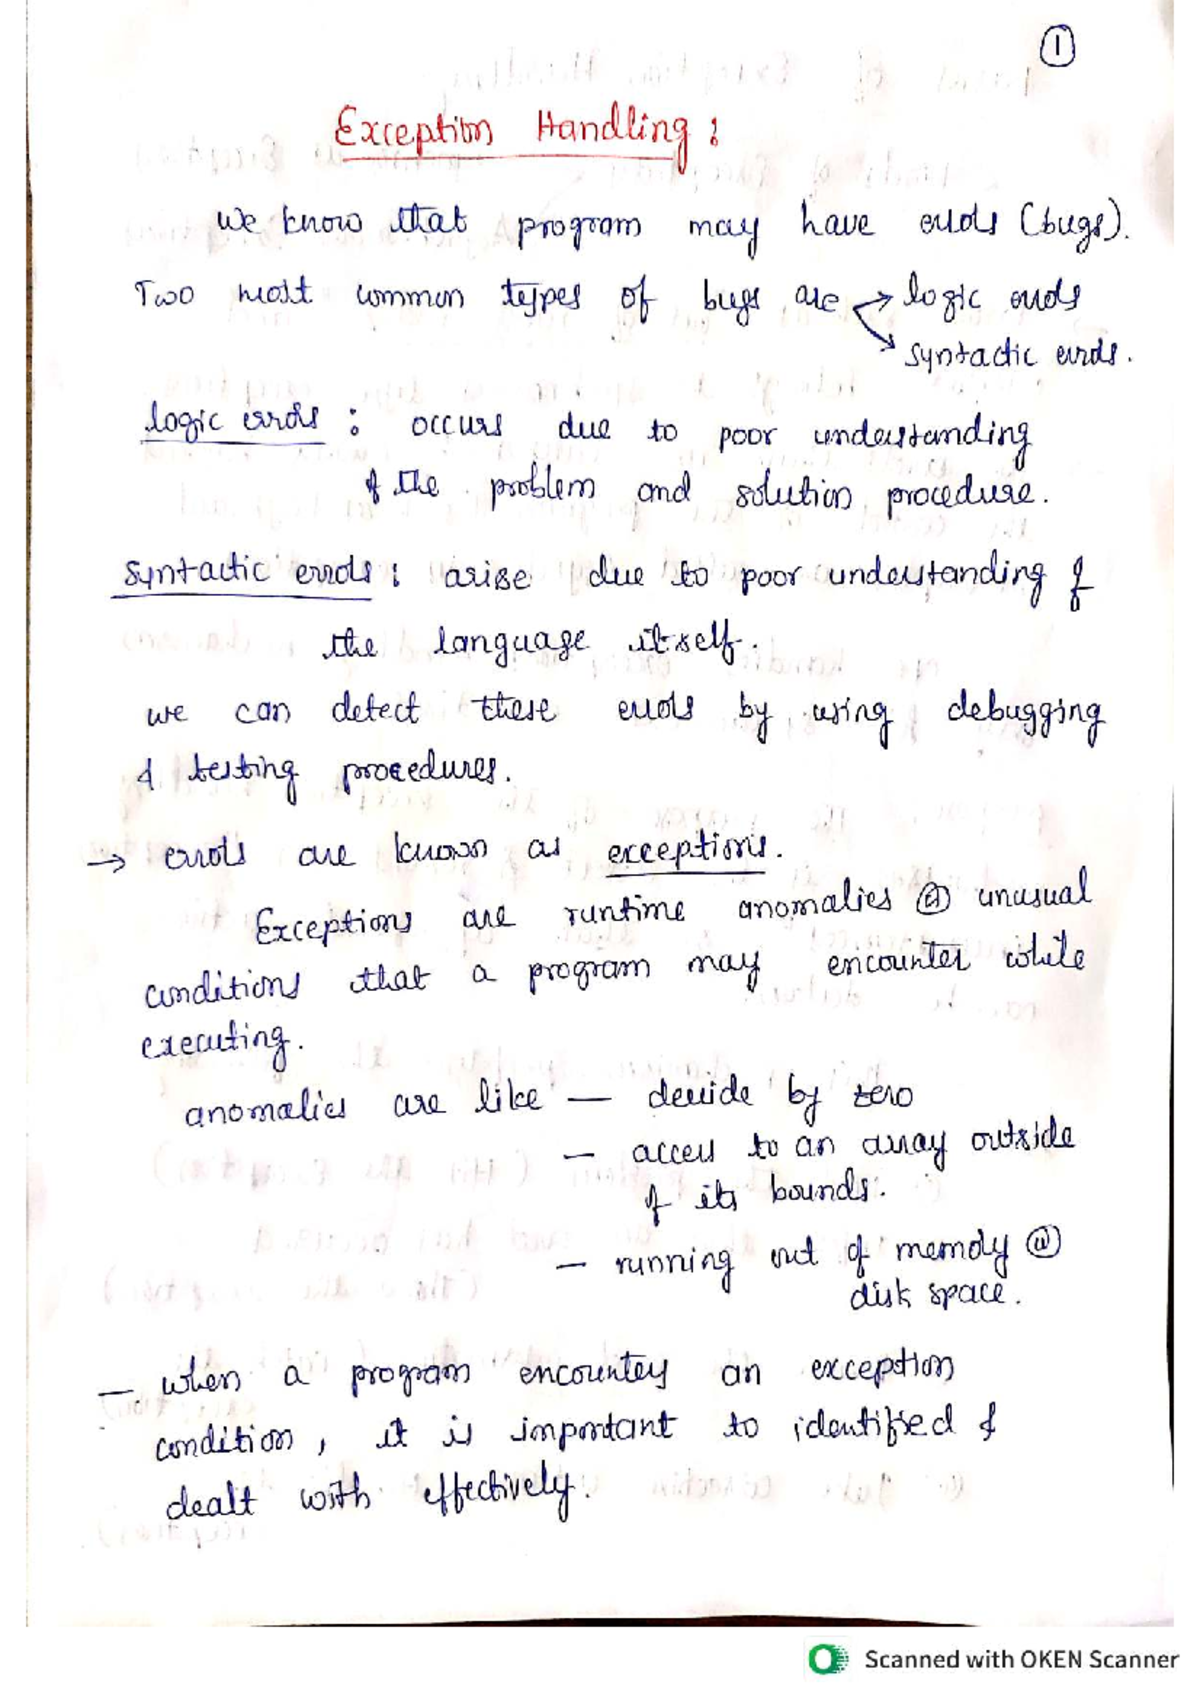 1
Exception Handling :
We know that program may have errors (bugs).
Two most common types of bugs are → logic errors
→ syntactic errors.
logic errors : occurs due to poor understanding
of the problem and solution procedure.
Syntactic errors : arise due to poor understanding of
the language itself.
we can detect these errors by using debugging
& testing procedures.
→ errors are known as exceptions.
Exceptions are runtime anomalies (or) unusual
conditions that a program may encounter while
executing.
anomalies are like — devide by zero
— access to an array outside
of its bounds.
— running out of memory (or)
disk space.
— when a program encounters an exception
condition, it is important to identified &
dealt with effectively.
Scanned with OKEN Scanner